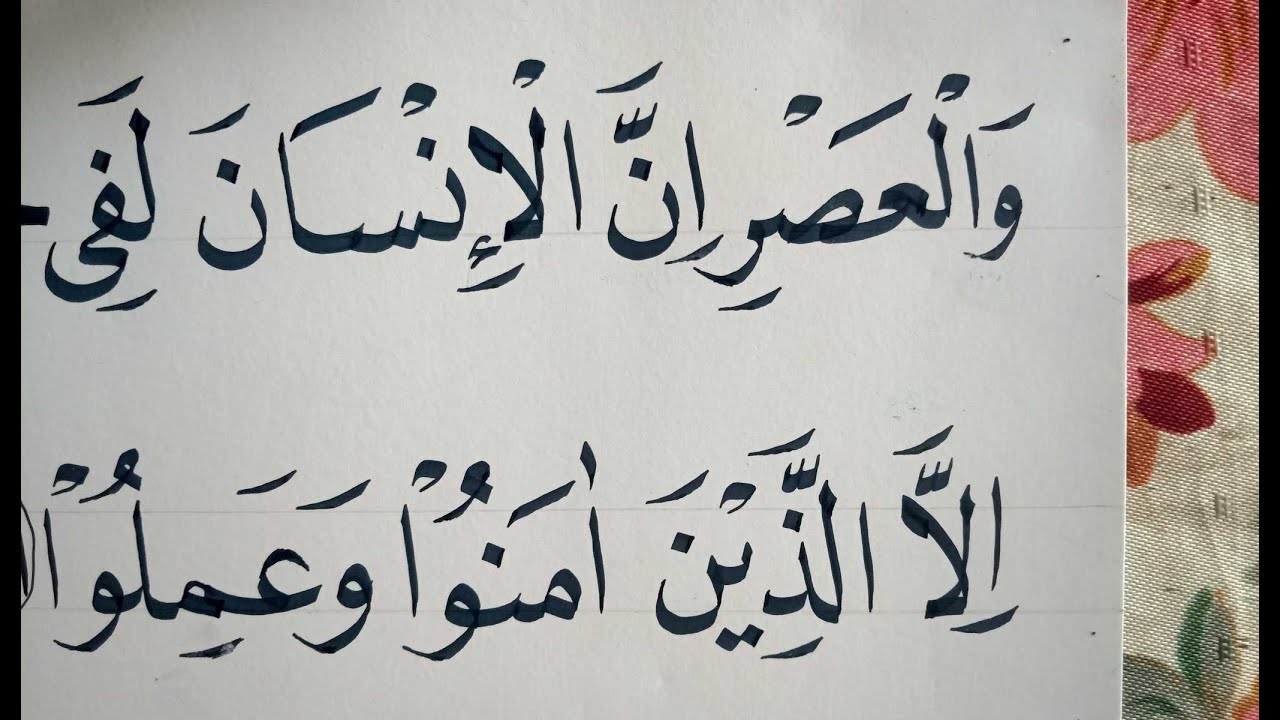 وَالْعَصْرِ اِنَّ الْاِنْسَانَ لَفِی
اِلَّا الَّذِیْنَ اٰمَنُوْا وَعَمِلُوْا